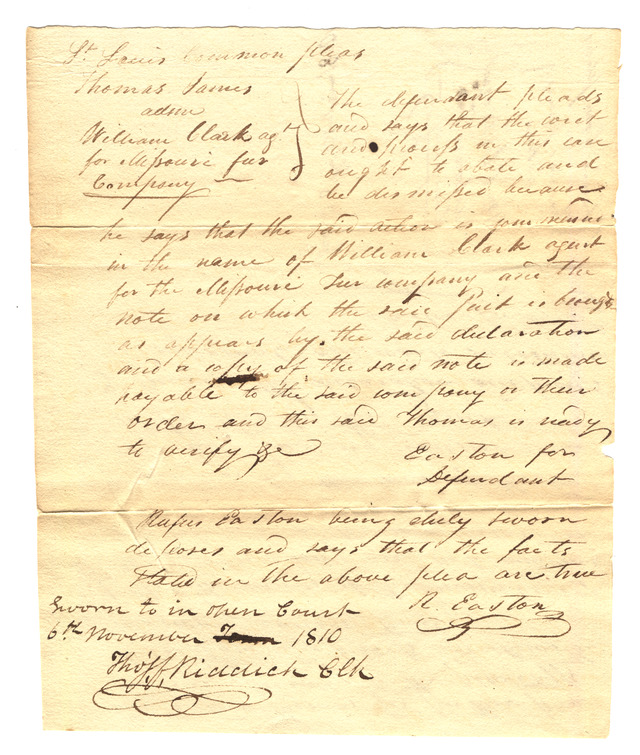 St Louis Common pleas
Thomas James
adsm
William Clark agt
for Missouri fur
Company
The defendant pleads
and says that the writ
and process in this case
ought to abate and
be dismissed because
he says that the said action is commenced
in the name of William Clark agent
for the Missouri Fur company and the
note on which the said suit is brought
as appears by the said declaration
and a copy of the said note is made
payable to the said company or their
order and this said Thomas is ready
to verify &c
Easton for
Defendant
Rufus Easton being duly sworn
deposes and says that the facts
stated in the above plea are true
R. Easton
Sworn to in open Court
6th November 1810
Thos F Riddick Clk